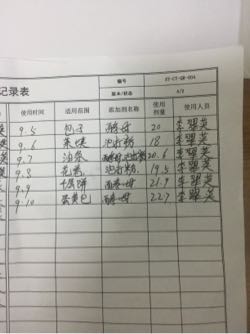 记录表
编号 SY-CY-QR-004
版本/状态 A/0
使用时间 适用范围 添加剂名称 使用剂量 使用人员
9.5 包子 酵母 20 李翠英
9.6 18 李翠英
9.7 油条 20.6 李翠英
9.8 花卷 泡打粉 19.5 李翠英
9.9 千层饼 酵母 21.9 李翠英
9.10 蛋黄包 酵母 22.7 李翠英